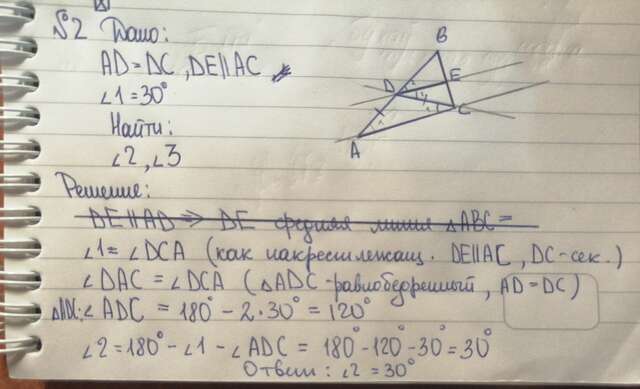 №2 Дано:
AD=DC, DE||AC
∠1=30°
Найти:
∠2, ∠3
B
D
E
C
A
Решение:
DE||AD => DE средняя линия △ABC =
∠1=∠DCA (как накрестлежащ. DE||AC, DC-сек.)
∠DAC = ∠DCA (△ADC-равнобедренный, AD=DC)
△ADC: ∠ADC = 180° - 2·30° = 120°
∠2=180° - ∠1 - ∠ADC = 180° - 120° - 30° = 30°
Ответ: ∠2 = 30°